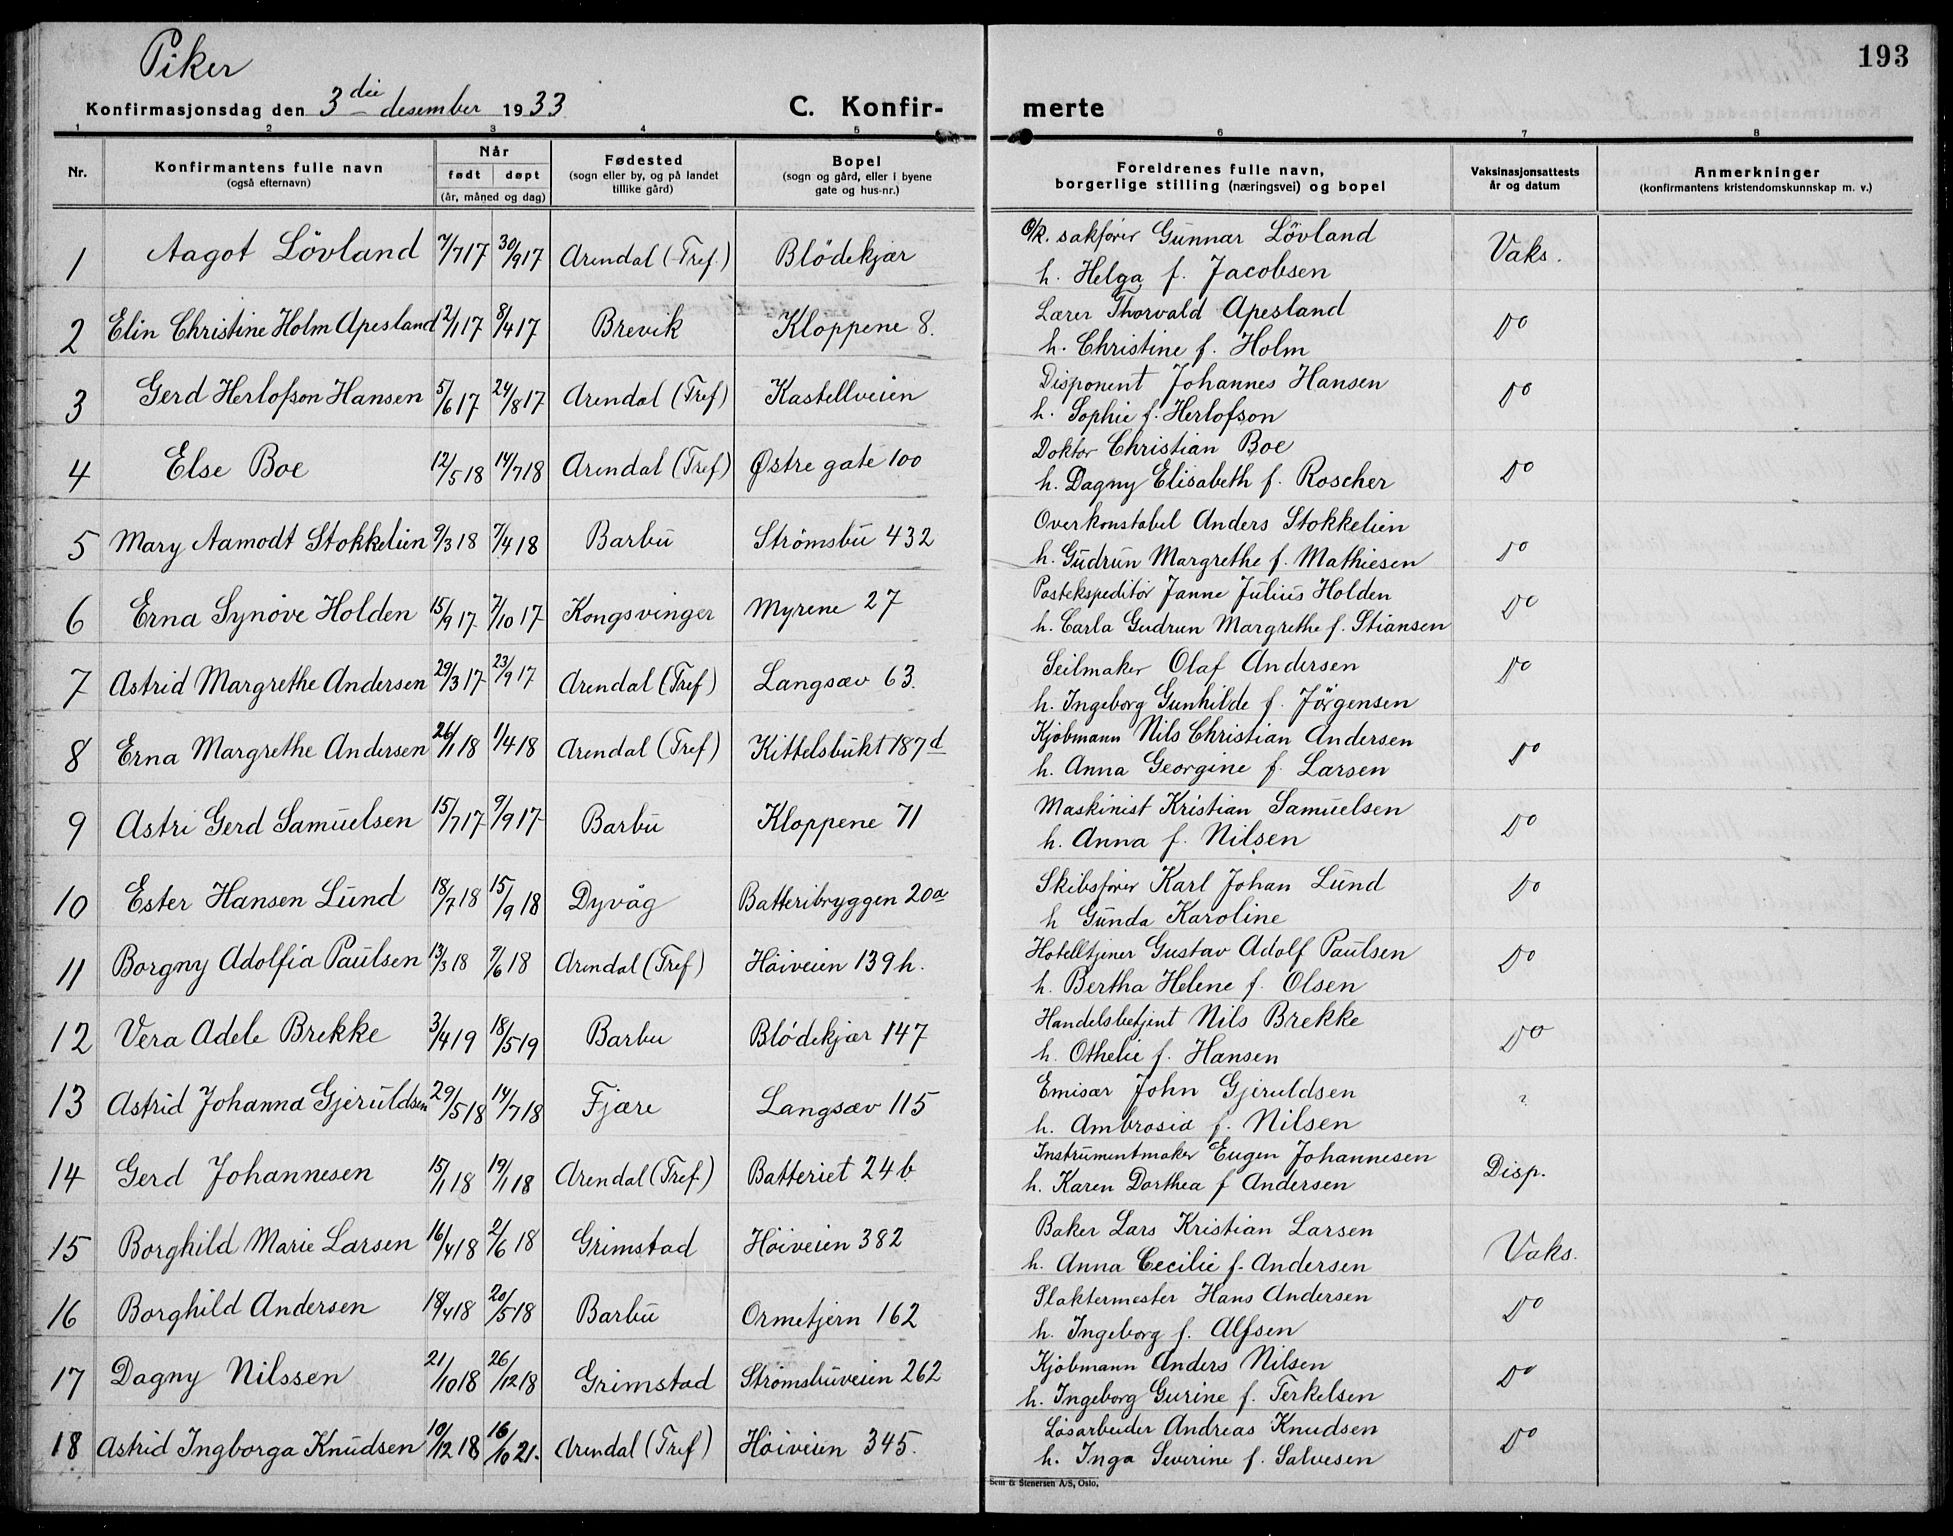 Piker
193
Konfirmasjonsdag den 3die desember 1933
C. Konfirmerte
1 2 3 4 5 6 7 8
Nr. | Konfirmantens fulle navn (også efternavn) | Når født døpt (år, måned og dag) | Fødested (sogn eller by, og på landet tillike gård) | Bopel (sogn og gård, eller i byene gate og hus-nr.) | Foreldrenes fulle navn, borgerlige stilling (næringsvei) og bopel | Vaksinasjonsattests år og datum | Anmerkninger (konfirmantens kristendomskunnskap m. v.)
1 Aagot Lövland 7/7 17 30/9 17 Arendal (Tref.) Blödekjær O/R. sakfører Gunnar Lövland Vaks.
h. Helga f. Jacobsen
2 Elin Christine Holm Apesland 2/1 17 8/4 17 Brevik Kloppene 8. Lærer Thorvald Apesland Do
h. Christine f. Holm
3 Gerd Herlofson Hansen 5/6 17 24/8 17 Arendal (Tref) Kastellveien Disponent Johannes Hansen Do
h. Sophie f. Herlofson
4 Else Boe 12/5 18 14/7 18 Arendal (Tref) Østre gate 100 Doktor Christian Boe Do
h. Dagny Elisabeth f. Roscher
5 Mary Aamodt Stokkelien 9/3 18 7/4 18 Barbu Strømsbu 432 Overkonstabel Anders Stokkelien Do
h. Gudrun Margrethe f. Mathiesen
6 Erna Synøve Holden 15/9 17 7/10 17 Kongsvinger Myrene 27 Postekspeditør Janne Julius Holden Do
h. Carla Gudrun Margrethe f. Stiansen
7 Astrid Margrethe Andersen 29/3 17 23/9 17 Arendal (Tref) Langsæv 63. Seilmaker Olaf Andersen Do
h. Ingeborg Gunhilde f. Jörgensen
8 Erna Margrethe Andersen 26/1 18 1/4 18 Arendal (Tref) Kittelsbukt 187d Kjøbmann Nils Christian Andersen Do
h. Anna Georgine f. Larsen
9 Astri Gerd Samuelsen 15/7 17 9/9 17 Barbu Kloppene 71 Maskinist Kristian Samuelsen Do
h. Anna f. Nilsen
10 Ester Hansen Lund 18/7 18 15/9 18 Dyvåg Batteribryggen 20a Skibsfører Karl Johan Lund Do
h Gunda Karoline
11 Borgny Adolfia Paulsen 13/3 18 9/6 18 Arendal (Tref) Høiveien 139 h. Hotelltjener Gustav Adolf Paulsen Do
h. Bertha Helene f. Olsen
12 Vera Adele Brekke 3/4 19 18/5 19 Barbu Blødekjær 147 Handelsbetjent Nils Brekke Do
h. Othelie f. Hansen
13 Astrid Johanna Gjeruldsen 29/5 18 14/7 18 Fjære Langsæv 115 Emisær John Gjeruldsen ?
h. Ambrosia f. Nilsen
14 Gerd Johannesen 15/1 18 19/1 18 Arendal (Tref.) Batteriet 24 b. Instrumentmaker Eugen Johannesen Disp.
h. Karen Dorthea f Andersen
15 Borghild Marie Larsen 16/4 18 2/6 18 Grimstad Høiveien 382 Baker Lars Kristian Larsen Vaks.
h. Anna Cecilie f. Andersen
16 Borghild Andersen 18/4 18 20/5 18 Barbu Ormetjern 162 Slaktermester Hans Andersen Do
h. Ingeborg f. Alfsen
17 Dagny Nilssen 21/10 18 26/12 18 Grimstad Strømsbuveien 262 Kjøbmann Anders Nilsen Do
h. Ingeborg Gurine f. Terkelsen
18 Astrid Ingborga Knudsen 10/12 18 16/10 21. Arendal (Tref) Høiveien 345. Løsarbeider Andreas Knudsen Do
h. Inga Severine f. Salvesen
Sem & Stenersen A/S, Oslo.